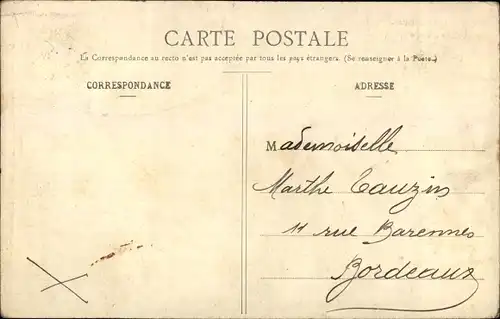 CARTE POSTALE
La Correspondance au recto n'est pas acceptée par tous les pays étrangers. (Se renseigner à la Poste.)
CORRESPONDANCE
ADRESSE
Mademoiselle
Marthe Tauzin
11 rue Barennes
Bordeaux